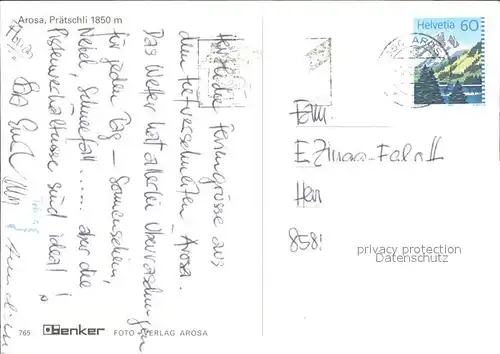 Arosa, Prätschli 1850 m
Herzliche Feriengrüsse aus
dem tiefverschneiten Arosa.
Das Wetter hat allerlei Überraschungen
für jeden Tag – Sonnenschein,
Nebel, Schneefall ..... aber die
Pistenverhältnisse sind ideal!
Helvetia 60
Fam.
8581
privacy protection
Datenschutz
765 Benker FOTO + VERLAG AROSA